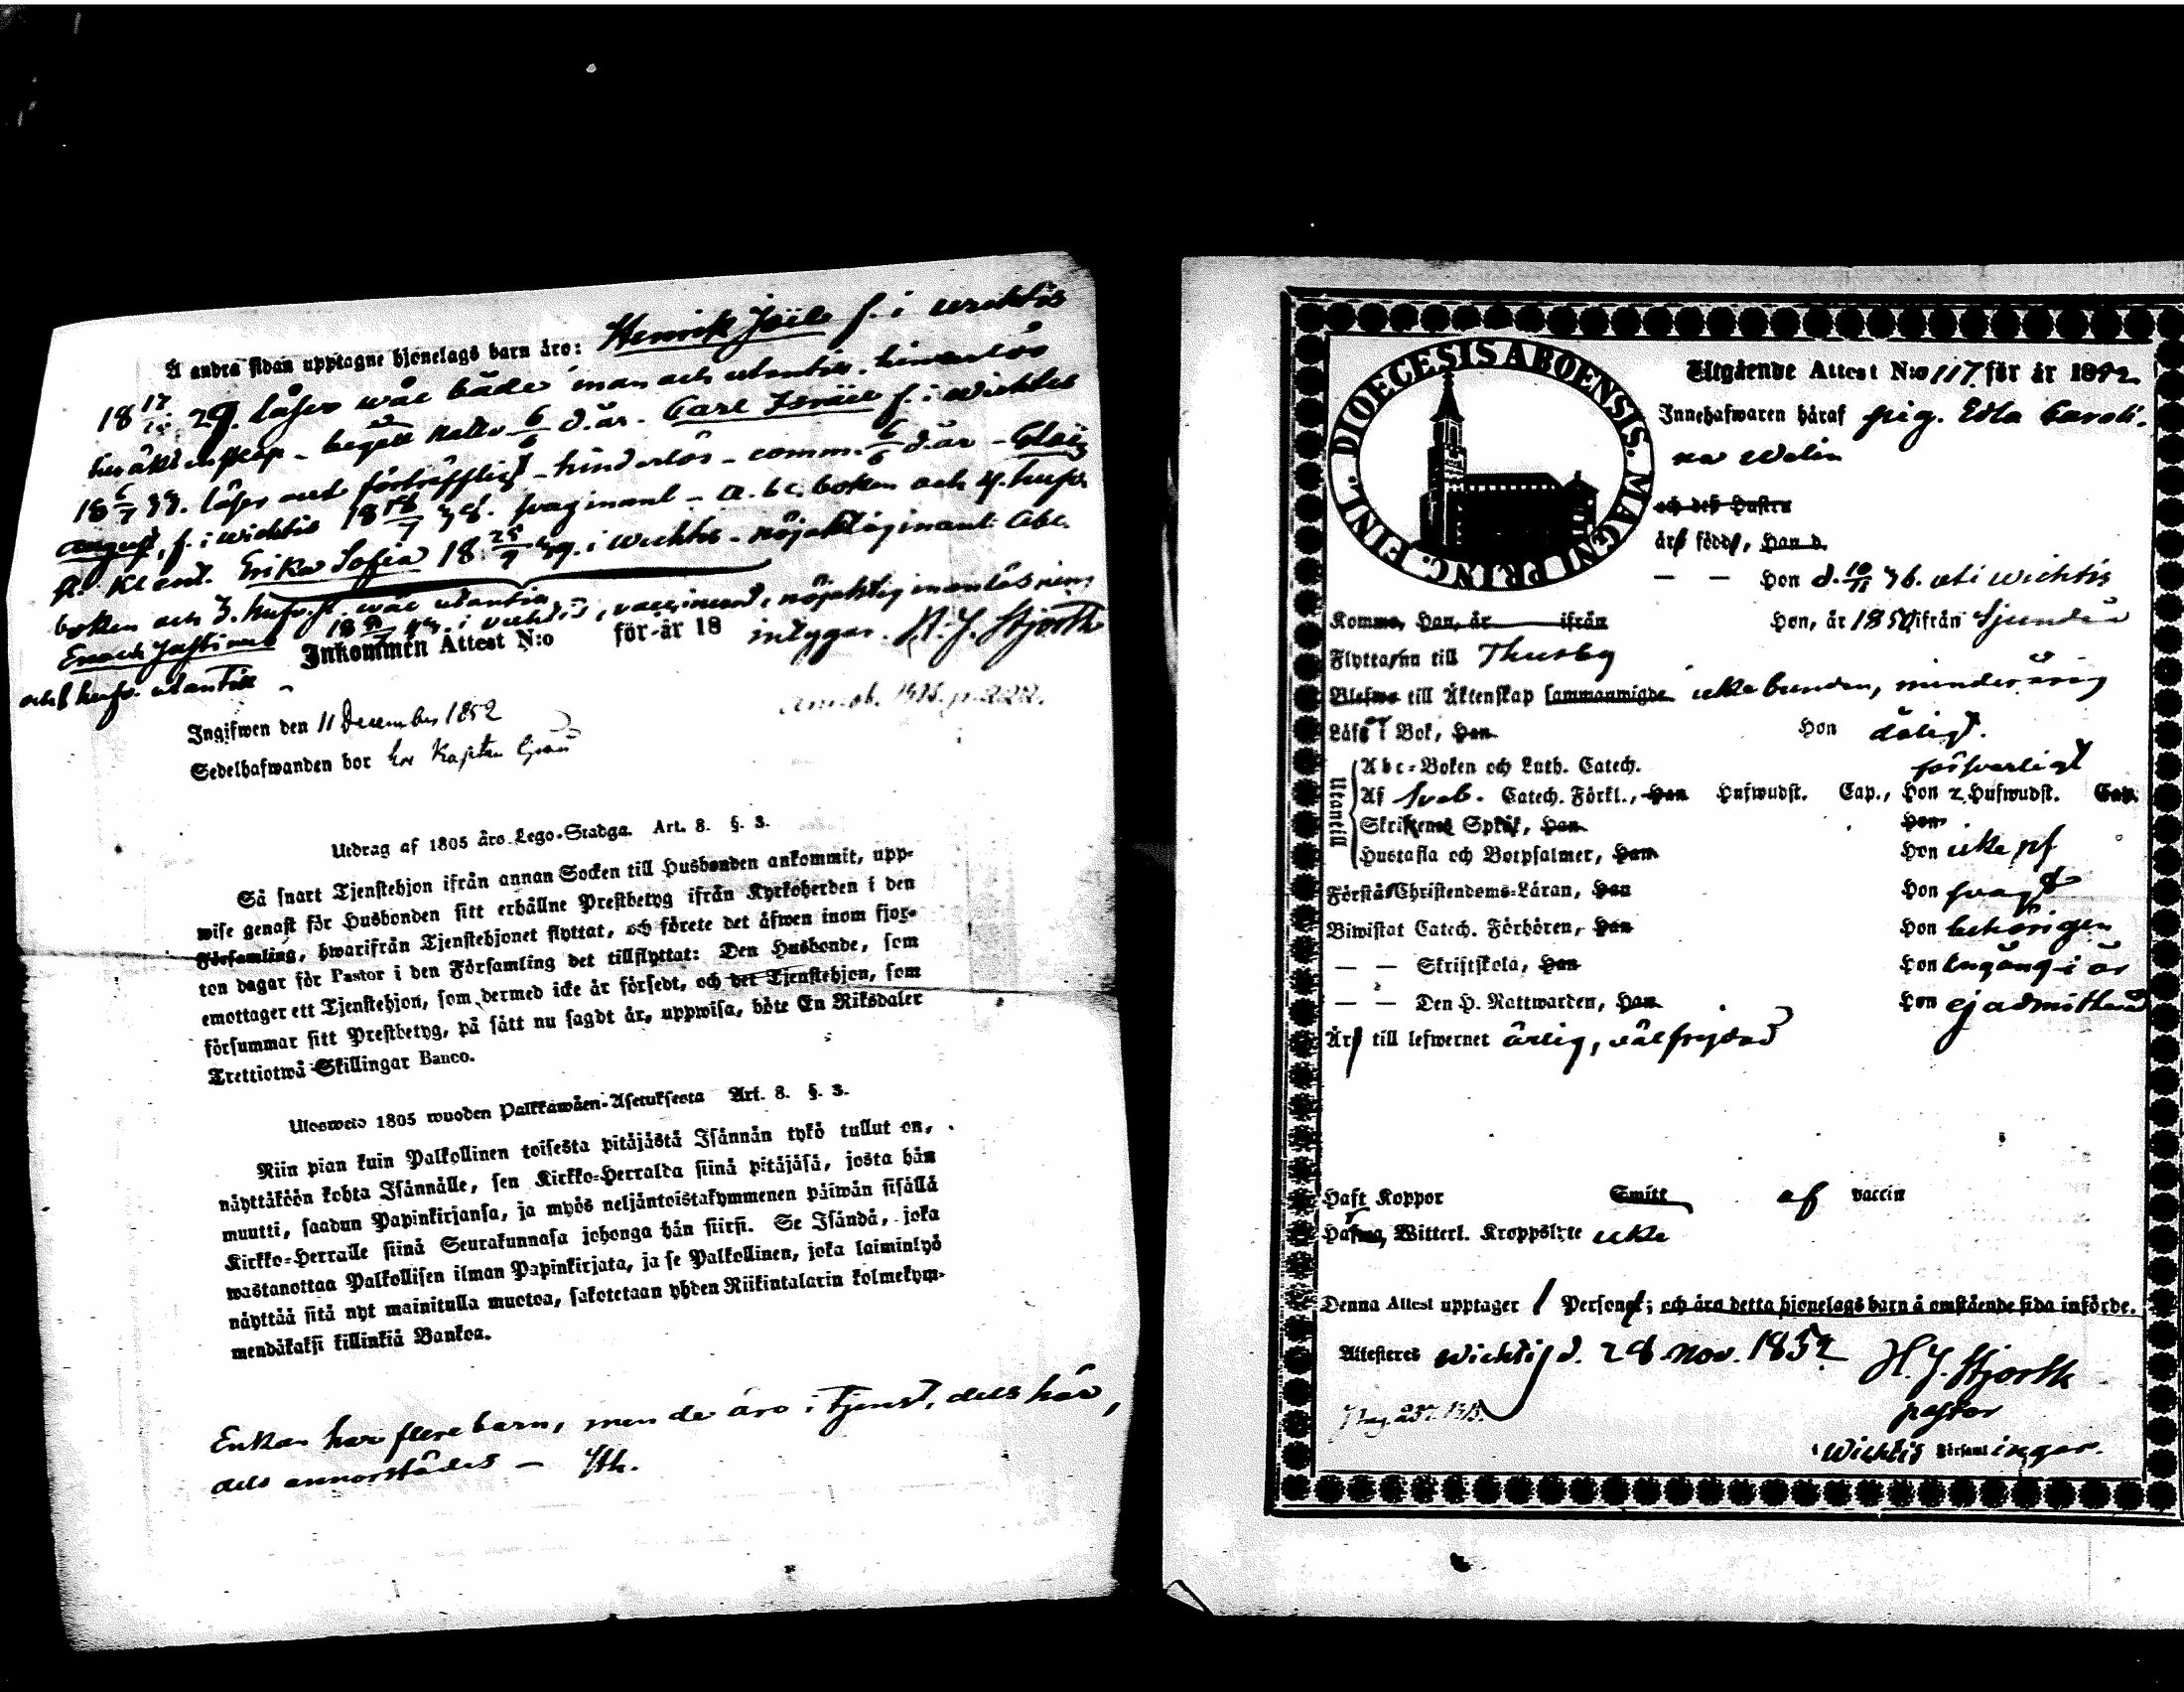 Å andra sidan upptagne hjonelags barn äro: Henrik Joële f. i Wichtis
18 17/10 29. läser wäl både innan och utantill. hinderlös
till äktenskap - begått nattv 6/6 d. år. Carl Israël f. i Wichtis
18 6/7 33. läser med förträfflig - hinderlös - comm. 6/6 d. år -
August, f. i Wichtis 18 18/7 svag innant - a.b.c. boken och 4. hufv.
st. Erika Sofia 18 25/9 39. i Wichtis - nöjaktig innant. abc.
boken och 3. hufv. st. wäl utantill
18 i Wichtis, vaccinerad, nöjaktig innanläsning
och 5 hufv. utantill
Inkommen Attest N:o för år 18 intygar. H. J. Hjorth
Ingifwen den 11 December 1852
Sedelhafwanden bor hos Kapten
Utdrag af 1805 års Lego-Stadga. Art. 8. §. 3.
Så snart Tjenstehjon ifrån annan Socken till Husbonden ankommit, upp-
wise genast för Husbonden sitt erhållne Prestbetyg ifrån Kyrkoherden i den
Församling, hwarifrån Tjenstehjonet flyttat, och förete det äfwen inom fjor-
ton dagar för Pastor i den Församling det tillflyttat: Den Husbonde, som
emottager ett Tjenstehjon, som dermed icke är försedt, och det Tjenstehjon, som
försummar sitt Prestbetyg, på sätt nu sagdt är, uppwisa, böte En Riksdaler
Trettiotwå Skillingar Banco.
Ulosweto 1805 wuoden Palkkawäen-Asetuksesta Art. 8. §. 3.
Niin pian kuin Palkollinen toisesta pitäjästä Isännän tykö tullut on,
näyttäköön kohta Isännälle, sen Kirkko-Herralda siinä pitäjäsä, josta hän
muutti, saadun Papinkirjansa, ja myös neljäntoistakymmenen päiwän sisällä
Kirkko-Herralle siinä Seurakunnasa johonga hän siirsi. Se Isändä, joka
wastanottaa Palkollisen ilman Papinkirjata, ja se Palkollinen, joka laiminlyö
näyttää sitä nyt mainitulla muotoa, sakotetaan yhden Riikintalarin kolmekym-
mendäkaksi killinkiä Bankoa.
Enkan har flere barn, men de äro i tjenst, dels här,
dels annorstädes - Hth.
DIOECESIS ABOENSIS. MAGNI PRINC. FINL.
Utgående Attest N:o 117 för år 1852
Innehafwaren häraf pig. Edla Caroli-
na Welin
och deß Hustru
äro födde, Han d.
— — Hon d. 10/11 36. uti Wichtis
Komme, Han, år ifrån Hon, år 1850 ifrån Sjundeå
Flyttar nu till Thusby
Blefwo till Äktenskap sammanwigde icke bunden, minderårig
Läser i Bok, Han Hon dåligt.
Utantill
Abc-Boken och Luth. Catech. försvarligt
Af Sveb. Catech. Förkl., Han Hufwudst. Cap., Hon 2 Hufwudst. Cap.
Skriftenes Språk, Han Hon
Hustafla och Botpsalmer, Han Hon icke pf
Förstår Christendoms-Läran, Han Hon svagt
Biwistat Catech. Förhören, Han Hon behörigen
— — Skriftskola, Han Hon en gång i år
— — Den H. Nattwarden, Han Hon ej admitterad
Är till lefwernet ärlig, välfrejdad
Haft Koppor Smitt af vaccin
Hafwa Witterl. Kroppslyte icke
Denna Attest upptager 1 Person; och äro detta hjonelags barn å omstående sida införde.
Attesteres Wichtis d. 28 Nov. 1852 H. J. Hjorth
pastor
i Wichtis Församlingar.